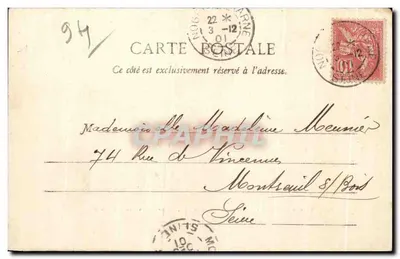 94
CARTE POSTALE
Ce côté est exclusivement réservé à l'adresse.
22 *
3 -12
01
Mademoiselle Madeleine Meunier
74 Rue de Vincennes
Montreuil s/ Bois
Seine